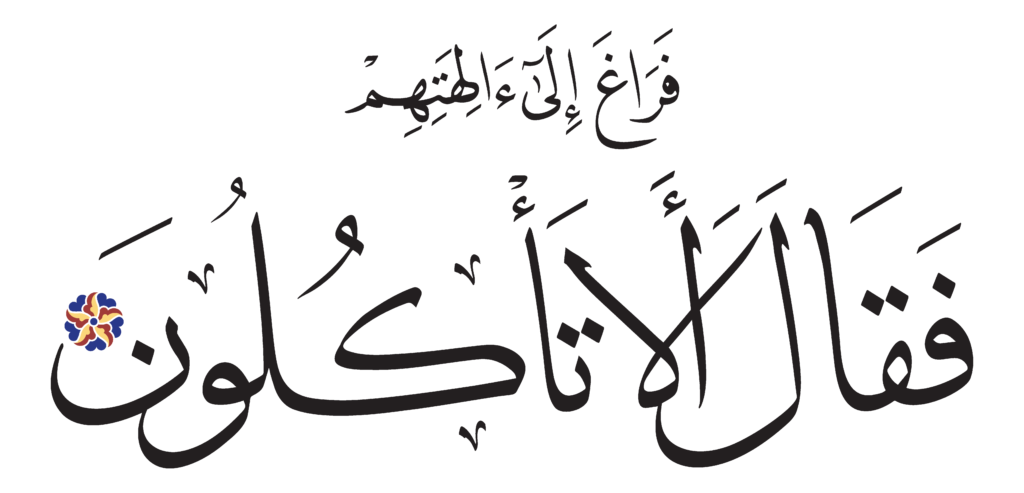 فَرَاغَ إِلَىٰٓ ءَالِهَتِهِمْ
فَقَالَ أَلَا تَأْكُلُونَ